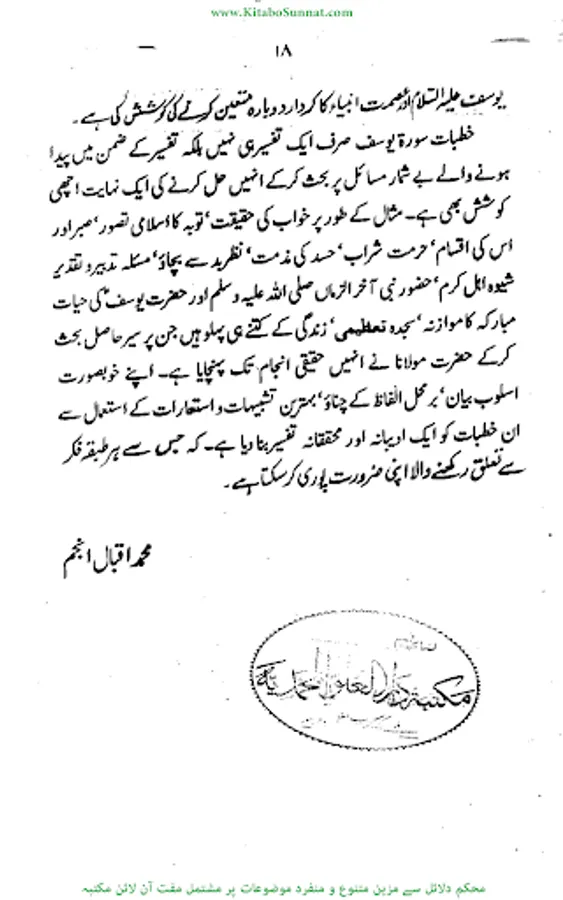 www.KitaboSunnat.com
۱۸
یوسف علیہ السلام اور عصمت انبیاء کا کردار دوبارہ متعین کرنے کی کوشش کی ہے۔
خطبات سورۃ یوسف صرف ایک تفسیر ہی نہیں بلکہ تفسیر کے ضمن میں پیدا
ہونے والے بے شمار مسائل پر بحث کرکے انہیں حل کرنے کی ایک نہایت اچھی
کوشش بھی ہے۔ مثال کے طور پر خواب کی حقیقت‘ توبہ کا اسلامی تصور‘ صبر اور
اس کی اقسام‘ حرمت شراب‘ حسد کی مذمت‘ نظربد سے بچاؤ‘ مسئلہ تدبیر و تقدیر
شیوہ اہل کرم‘ حضور نبی آخر الزماں صلی اللہ علیہ وسلم اور حضرت یوسفؑ کی حیات
مبارکہ کا موازنہ‘ سجدہ تعظیمی‘ زندگی کے کتنے ہی پہلو ہیں جن پر سیر حاصل بحث
کرکے حضرت مولانا نے انہیں حقیقی انجام تک پہنچایا ہے۔ اپنے خوبصورت
اسلوب بیان‘ برمحل الفاظ کے چناؤ‘ بہترین تشبیہات و استعارات کے استعمال سے
ان خطبات کو ایک ادیبانہ اور محققانہ تفسیر بنا دیا ہے۔ کہ جس سے ہر طبقہ فکر
سے تعلق رکھنے والا اپنی ضرورت پوری کر سکتا ہے۔
محمد اقبال انجم
مکتبہ دارالعلوم
محکم دلائل سے مزین متنوع و منفرد موضوعات پر مشتمل مفت آن لائن مکتبہ